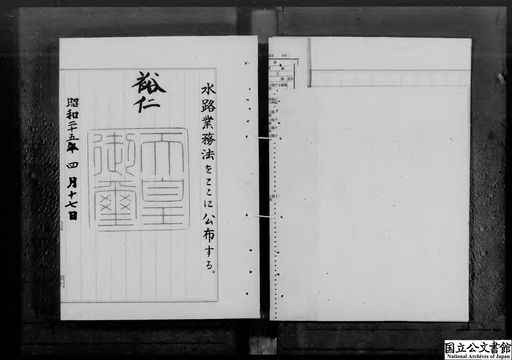 水路業務法をここに公布する。
裕仁
天皇
御璽
昭和二十五年四月十七日
国立公文書館
National Archives of Japan